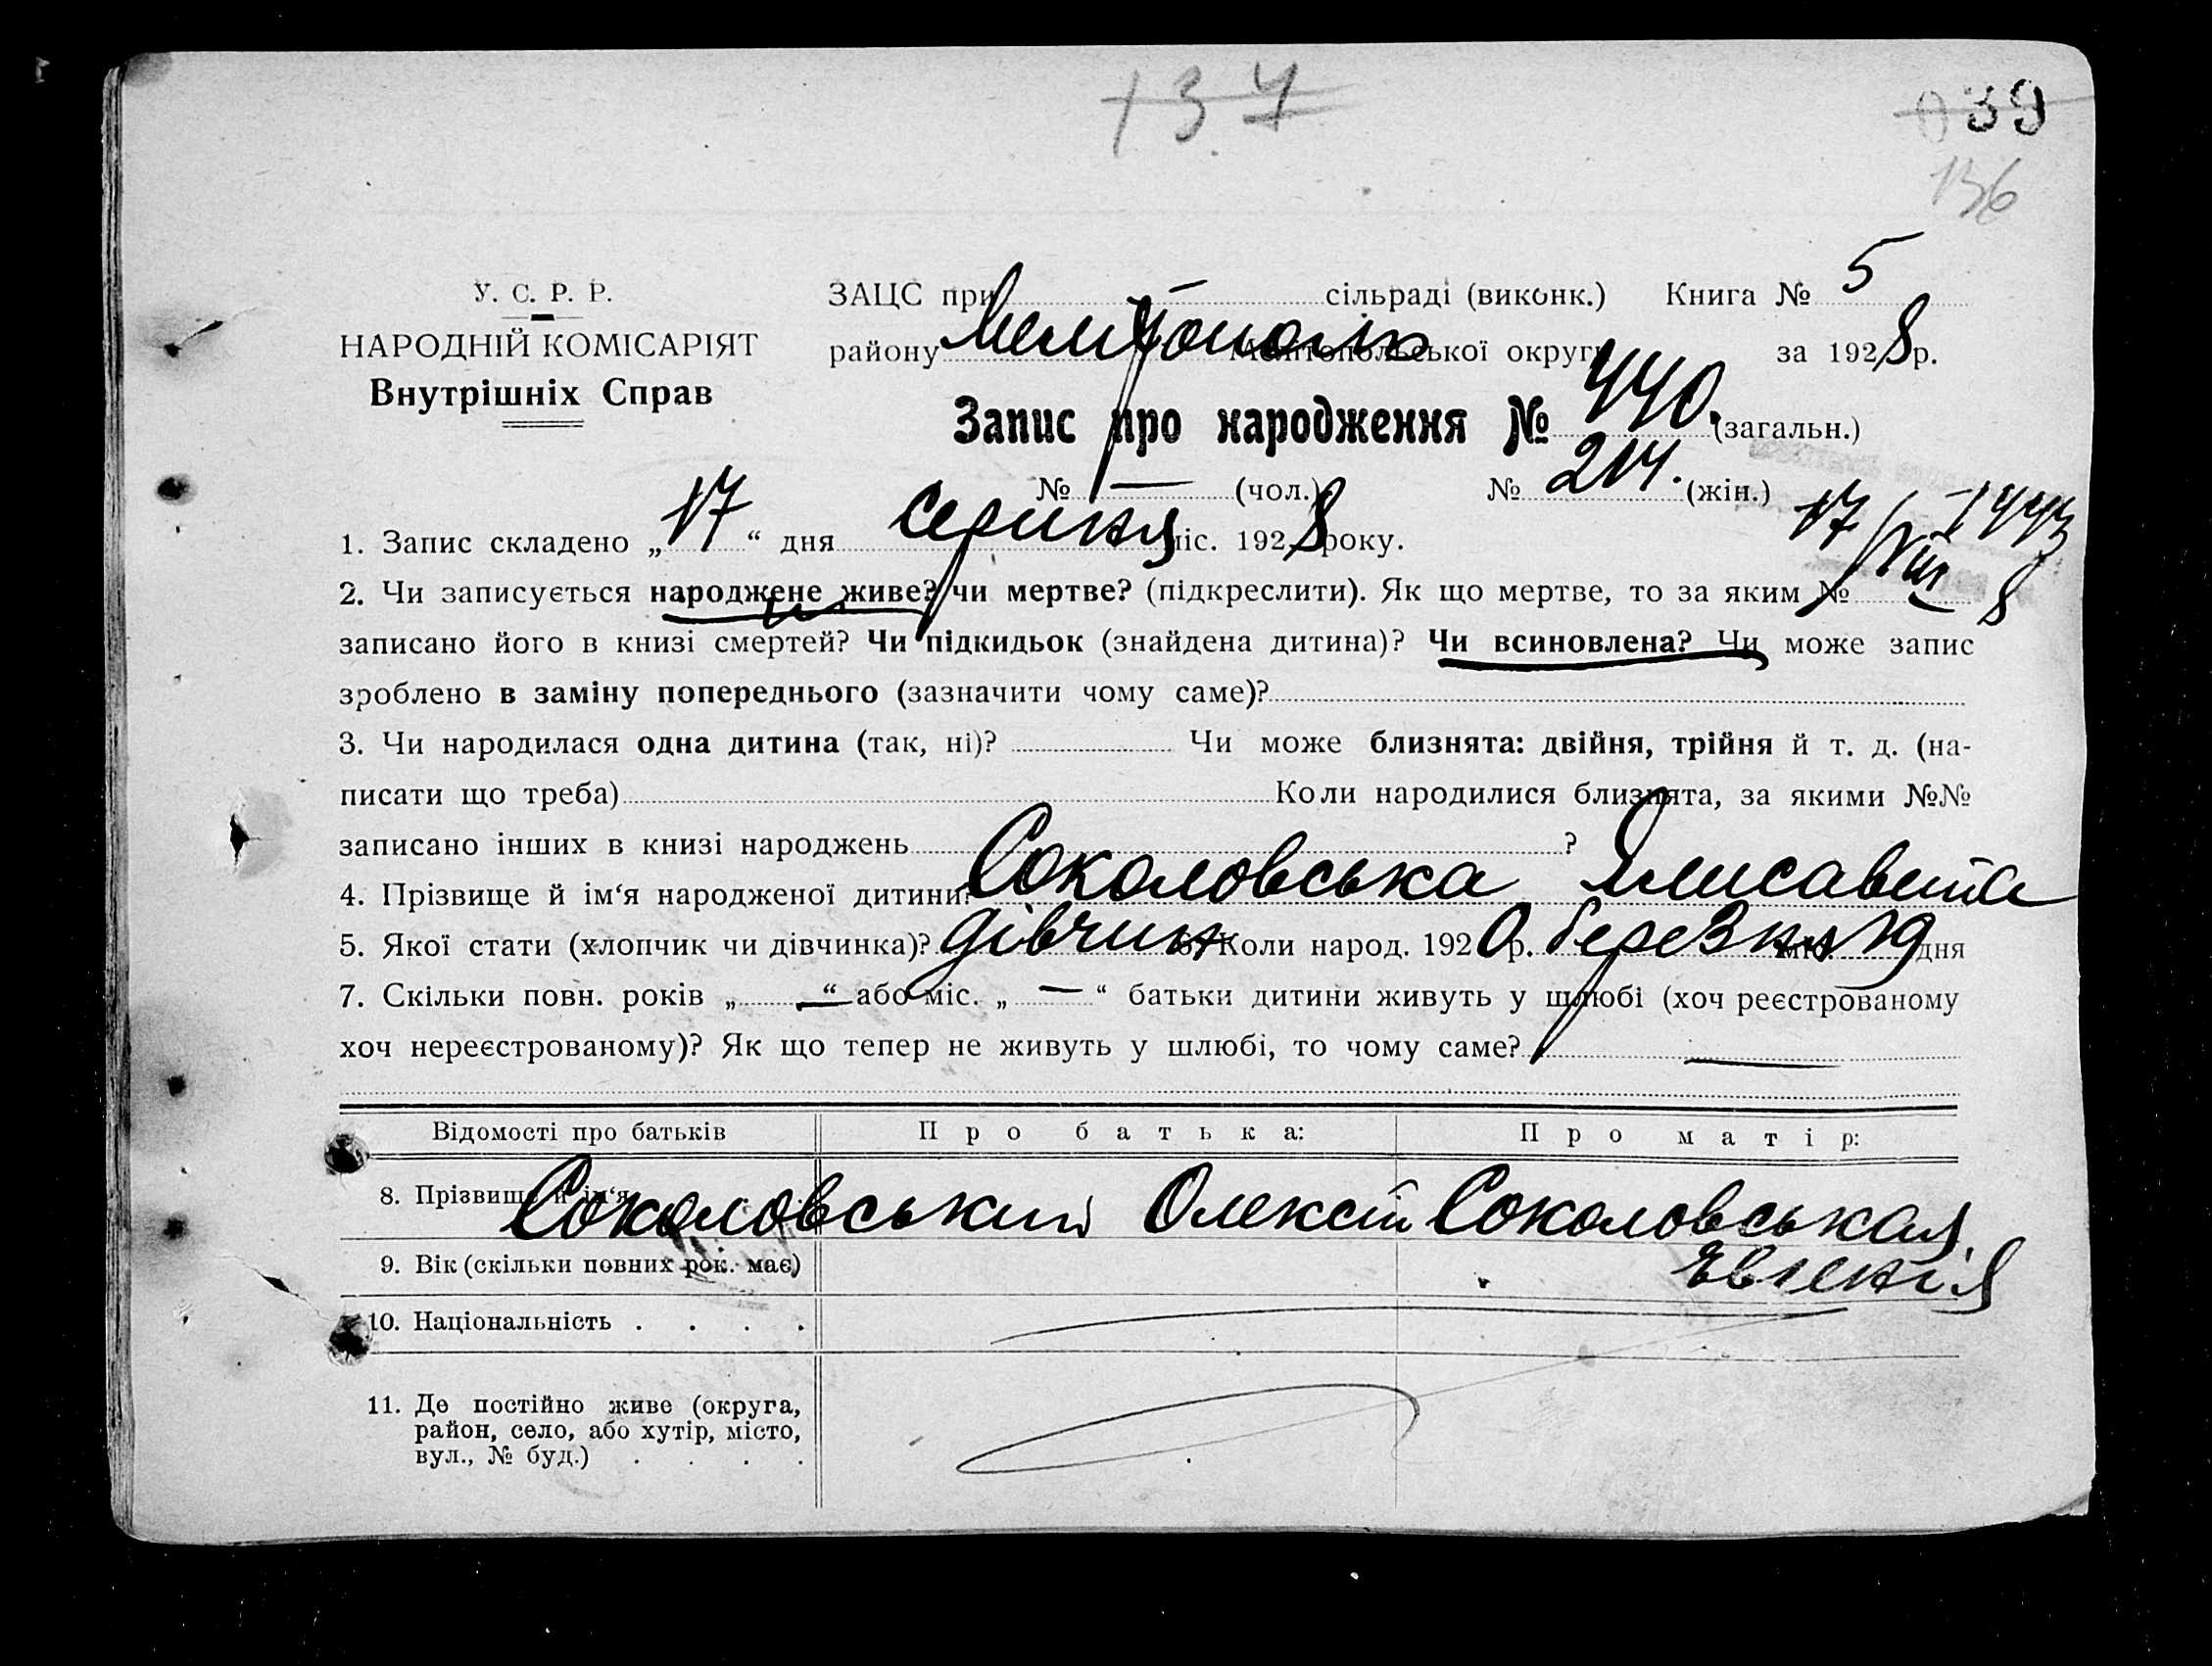 137
039
136
У. С. Р. Р.
НАРОДНІЙ КОМІСАРІЯТ
Внутрішніх Справ
ЗАЦС при — сільраді (виконк.) Книга № 5
району Мелітополь Мелітопольської округи за 1928 р.
Запис про народження № 440. (загальн.)
№ — (чол.) № 214. (жін.)
1. Запис складено „17“ дня Серпня міс. 1928 року.
17/VIII 8 1443
2. Чи записується народжене живе? чи мертве? (підкреслити). Як що мертве, то за яким №
записано його в книзі смертей? Чи підкидьок (знайдена дитина)? Чи всиновлена? Чи може запис
зроблено в заміну попереднього (зазначити чому саме)?
3. Чи народилася одна дитина (так, ні)? Чи може близнята: двійня, трійня й т. д. (на-
писати що треба) Коли народилися близнята, за якими №№
записано інших в книзі народжень ?
4. Прізвище й ім‘я народженої дитини? Соколовська Єлисавета
5. Якої стати (хлопчик чи дівчинка)? дівчин 6. Коли народ. 1920 р. березня міс. 19 дня
7. Скільки повн. років „—“ або міс. „—“ батьки дитини живуть у шлюбі (хоч реєстрованому
хоч нереєстрованому)? Як що тепер не живуть у шлюбі, то чому саме? —
Відомості про батьків Про батька: Про матір:
8. Прізвище й ім‘я Соколовський Олексій Соколовськая
Євгенія
9. Вік (скільки повних рок. має)
10. Національність . . . .
11. Де постійно живе (округа,
район, село, або хутір, місто,
вул., № буд.) . . . .